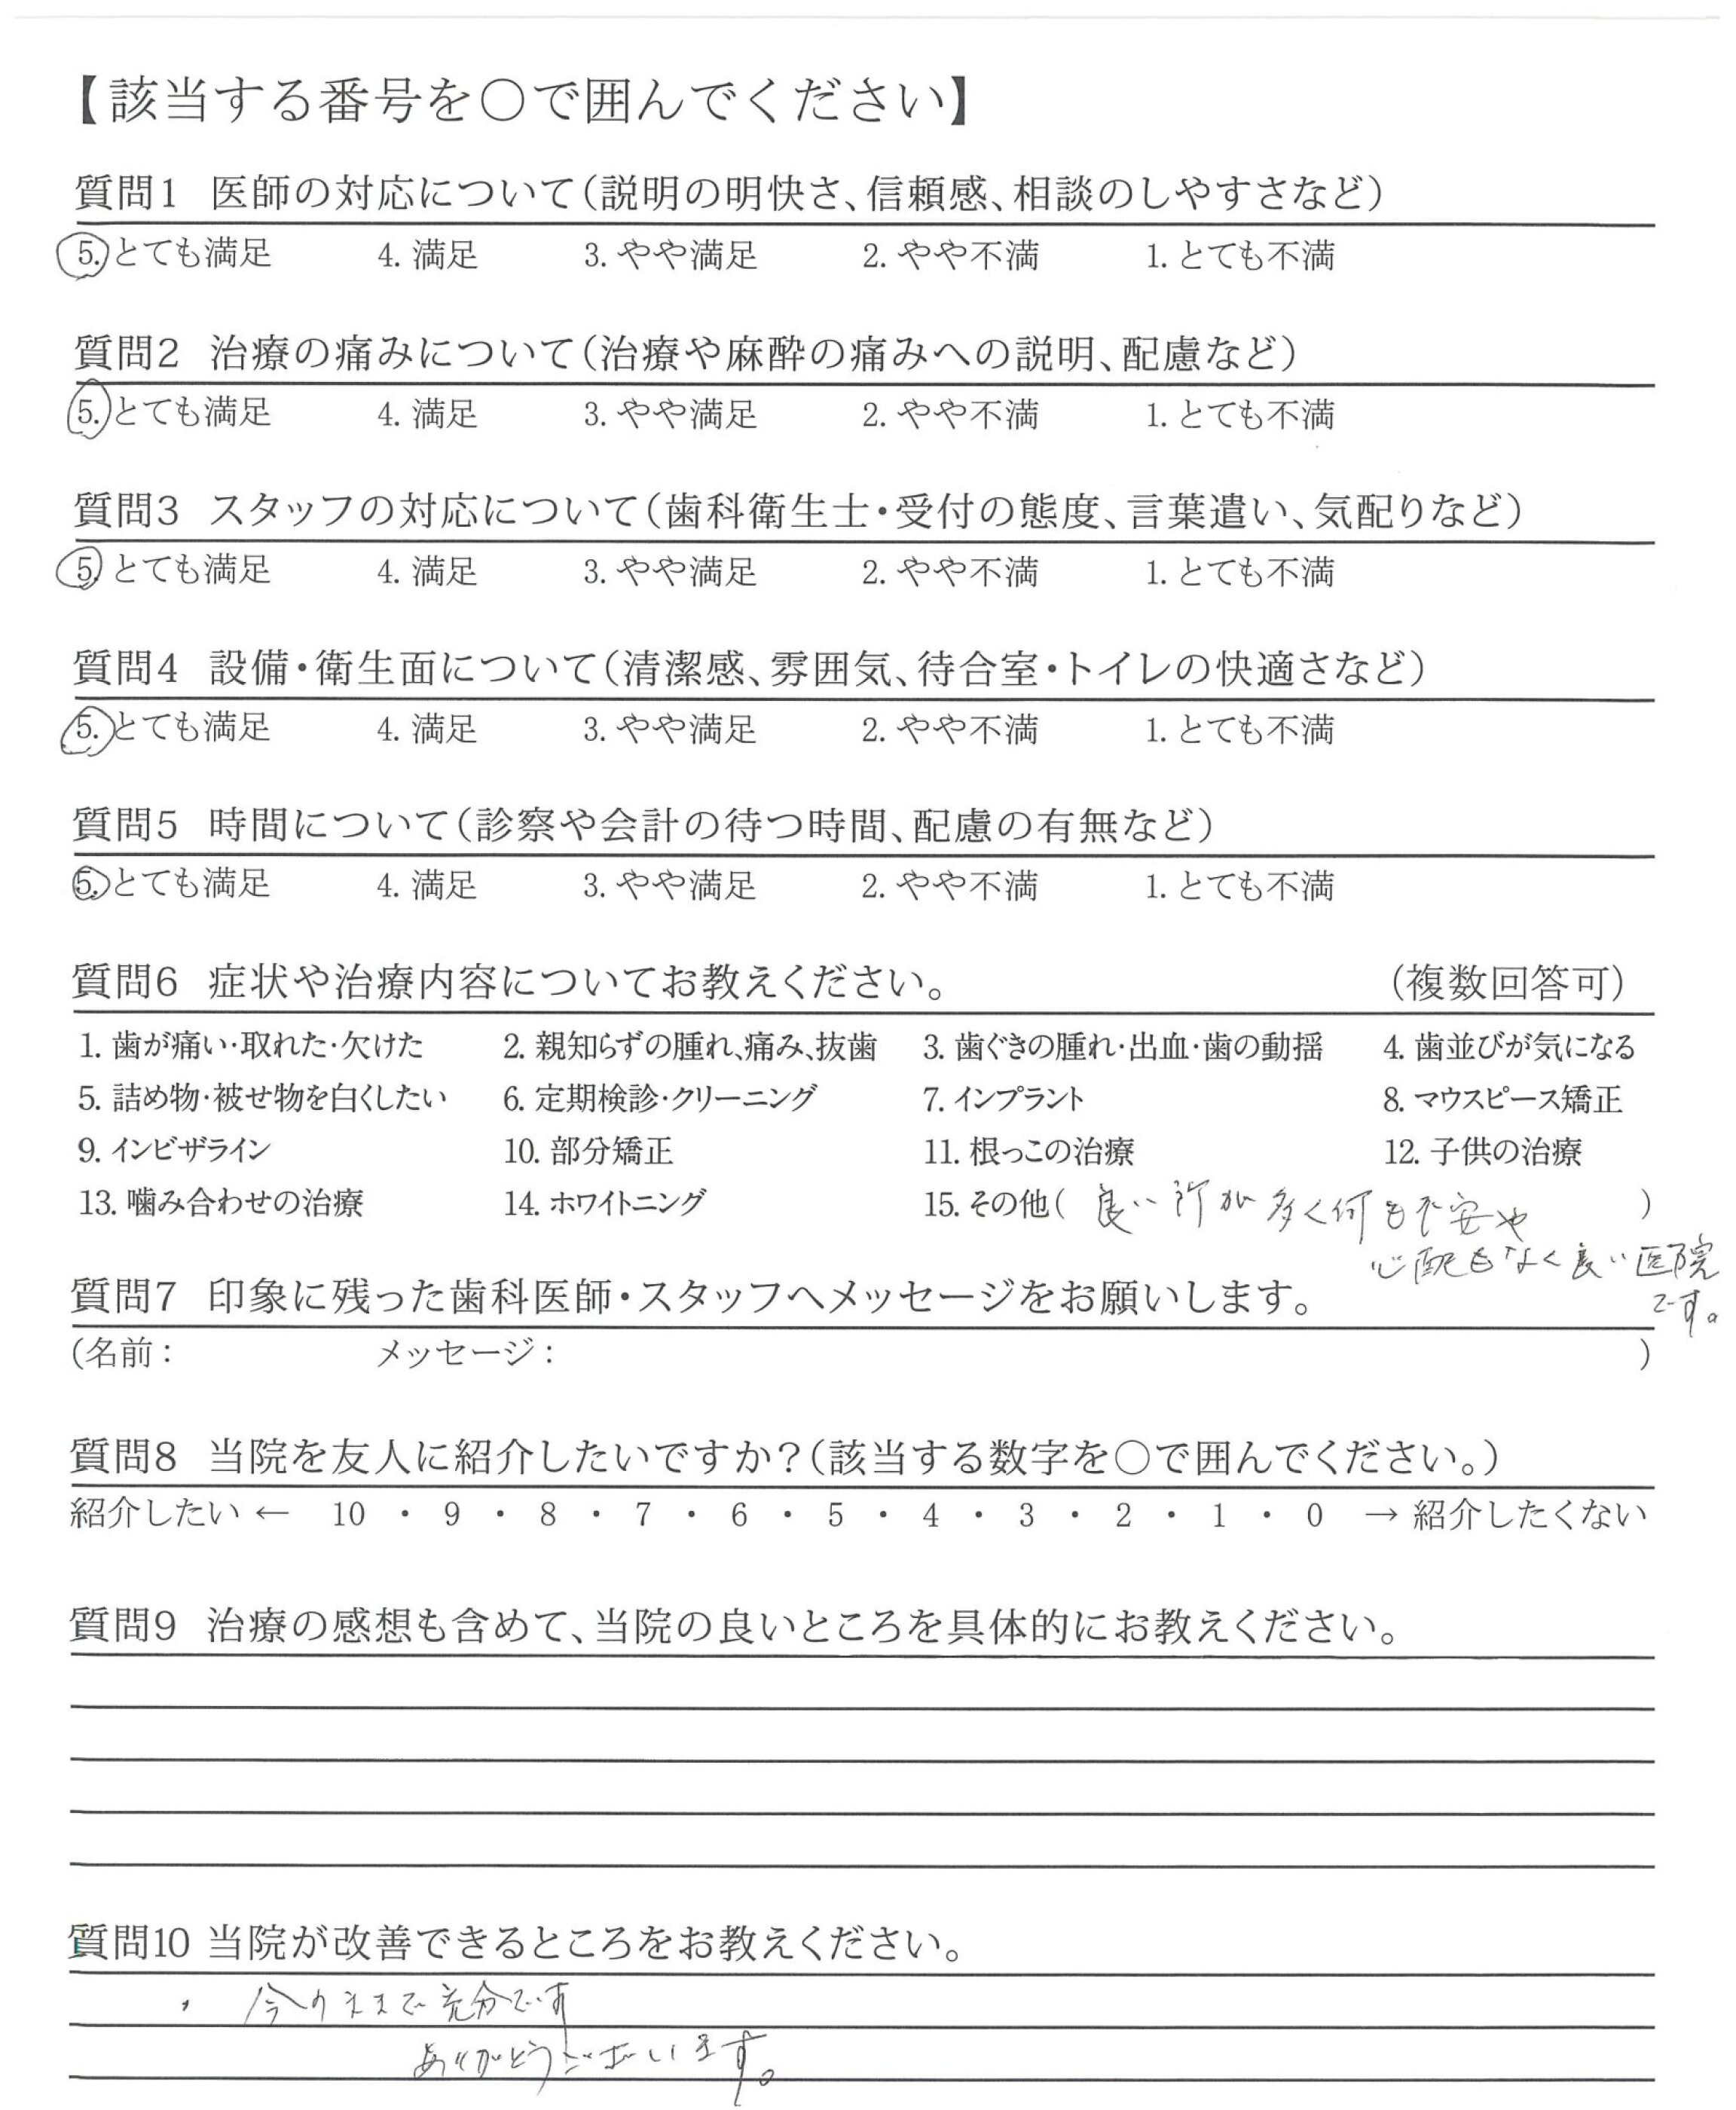 【該当する番号を○で囲んでください】
質問1 医師の対応について(説明の明快さ、信頼感、相談のしやすさなど)
5. とても満足 4. 満足 3. やや満足 2. やや不満 1. とても不満
質問2 治療の痛みについて(治療や麻酔の痛みへの説明、配慮など)
5. とても満足 4. 満足 3. やや満足 2. やや不満 1. とても不満
質問3 スタッフの対応について(歯科衛生士・受付の態度、言葉遣い、気配りなど)
5. とても満足 4. 満足 3. やや満足 2. やや不満 1. とても不満
質問4 設備・衛生面について(清潔感、雰囲気、待合室・トイレの快適さなど)
5. とても満足 4. 満足 3. やや満足 2. やや不満 1. とても不満
質問5 時間について(診察や会計の待つ時間、配慮の有無など)
5. とても満足 4. 満足 3. やや満足 2. やや不満 1. とても不満
質問6 症状や治療内容についてお教えください。 (複数回答可)
1. 歯が痛い・取れた・欠けた 2. 親知らずの腫れ、痛み、抜歯 3. 歯ぐきの腫れ・出血・歯の動揺 4. 歯並びが気になる
5. 詰め物・被せ物を白くしたい 6. 定期検診・クリーニング 7. インプラント 8. マウスピース矯正
9. インビザライン 10. 部分矯正 11. 根っこの治療 12. 子供の治療
13. 噛み合わせの治療 14. ホワイトニング 15. その他( 良い所が多く何も不安や )
心配もなく良い医院
です。
質問7 印象に残った歯科医師・スタッフへメッセージをお願いします。
(名前: メッセージ: )
質問8 当院を友人に紹介したいですか?(該当する数字を○で囲んでください。)
紹介したい ← 10 ・ 9 ・ 8 ・ 7 ・ 6 ・ 5 ・ 4 ・ 3 ・ 2 ・ 1 ・ 0 → 紹介したくない
質問9 治療の感想も含めて、当院の良いところを具体的にお教えください。
質問10 当院が改善できるところをお教えください。
・ 今のままで充分です
ありがとうございます。